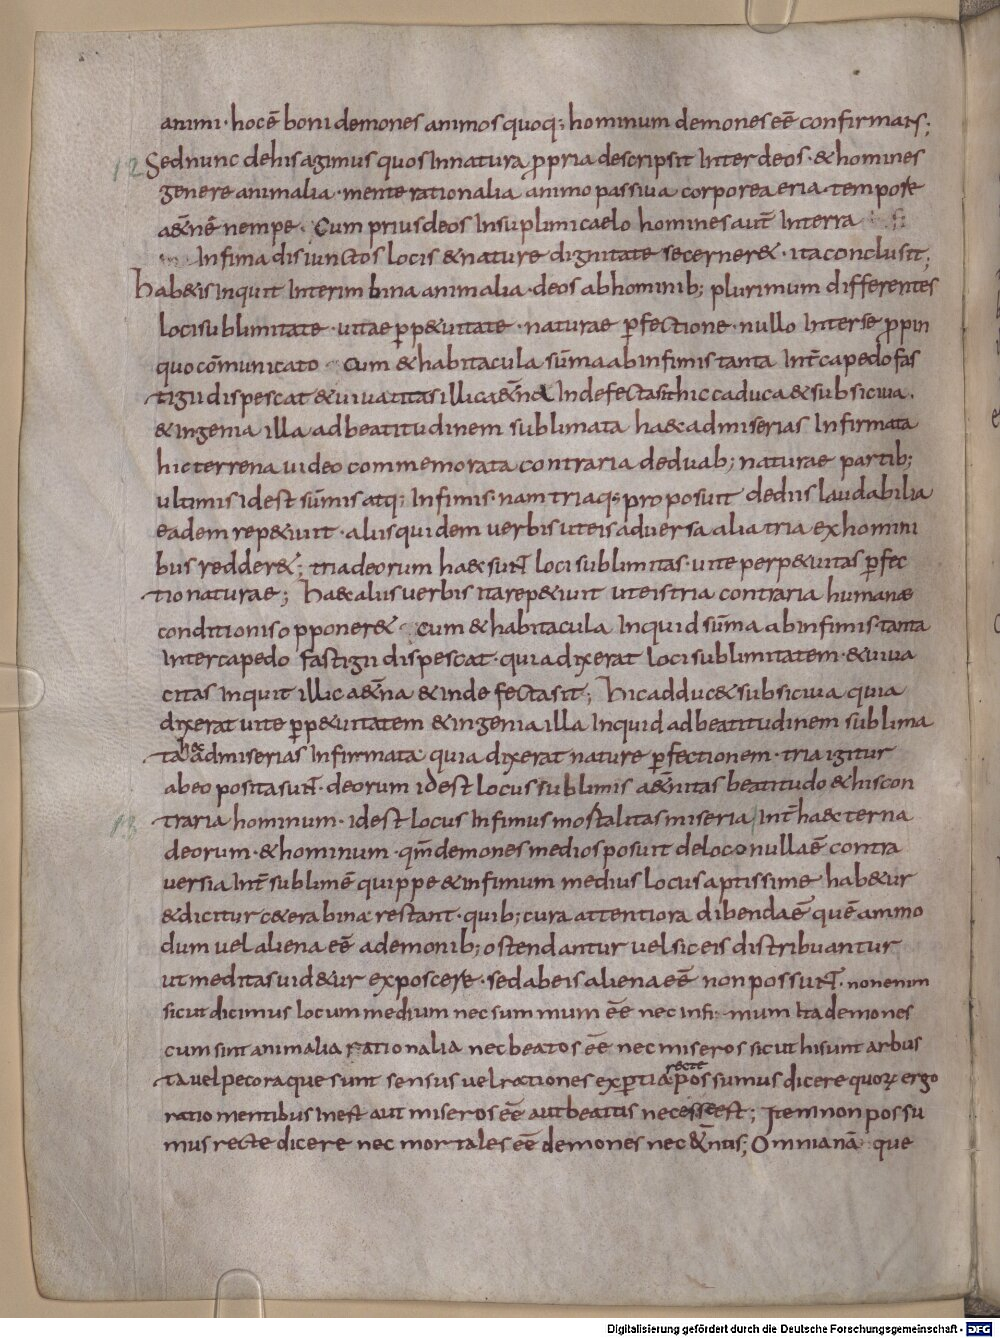 animi · hoc ē boni demones animos quoq; hominum demones eē confirmans;
12
Sed nunc de his agimus quos In natura ꝓpria descripsit Inter deos · & homines
genere animalia · mente rationalia animo passiua corpore aeria · tempore
a&nē nempe · Cum prius deos In suplimi caelo homines aut̄ In terra
Infima disiunctos locis & nature dignitate secerner& · ita conclusit;
hab&is Inquit Interim bina animalia · deos ab hominib; plurimum differentes
loci sublimitate · uitae ꝑp&uitate · naturae ꝑfectione · nullo Inter se ꝓpin
quo cōmunicato Cum & habitacula sūma ab infimis tanta Int̄capedo fas
tigii dispescat & uiuatitas illic a&n̄a Indefecta sit hic caduca & subsiciua ·
& ingenia illa ad beatitudinem sublimata ha&c ad miserias Infirmata
hic terrena uideo commemorata contraria deduab; naturae partib;
ultimis id est sūmis atq; Infimis · nam tria q; proposuit de diis laudabilia
eadem rep&iuit · aliis quidem uerbis ut eis aduersa alia tria ex homini
bus redder&; tria deorum ha&c sunt loci sublimitas · uite perp&uitas ꝑfec
tio naturae; ha&c aliis uerbis ita rep&iuit ut eis tria contraria humanæ
conditionis opponer& Cum & habitacula Inquid sūma ab infimis · tanta
Intercapedo fastigii dispescat · quia dixerat loci sublimitatem · & uiua
citas Inquit illic a&n̄na & Indefecta sit; hic adduc& subsiciua quia
dixerat uite ꝑp&uitatem & ingenia illa Inquid ad beatitudinem sublima
ta hæc ad miserias Infirmata · quia dixerat nature ꝑfectionem · tria igitur
ab eo posita sunt · deorum idest locus sublimis a&n̄itas beatitudo & his con
13
traria hominum · id est locus Infimus mortalitas miseria Int̄ ha&c terna
deorum · & hominum · qm̄ demones medios posuit de loco nulla ē contra
uersia Int̄ sublimē quippe & infimum medius locus aptissime hab&ur
& dicitur c&era bina restant · quib; cura attentiora dibenda ē quē ammo
dum uel aliena eē a demonib; ostendantur uel sic eis distribuantur
ut meditas uid&ur exposcere · sed ab eis aliena eē non possunt · non enim
sicut dicimus locum medium nec summum eē nec infi mum Ita demones
cum sint animalia rationalia nec beatos eē nec miseros sicut hi sunt arbus
ta uel pecora que sunt sensus uel rationes exꝑtia recte possumus dicere quoꝝ ergo
ratio mentibus Inest aut miseros eē aut beatus necesse est; Item non possu
mus recte dicere nec mortales eē demones nec &n̄tis; Omnia nā que
Digitalisierung gefördert durch die Deutsche Forschungsgemeinschaft - DFG